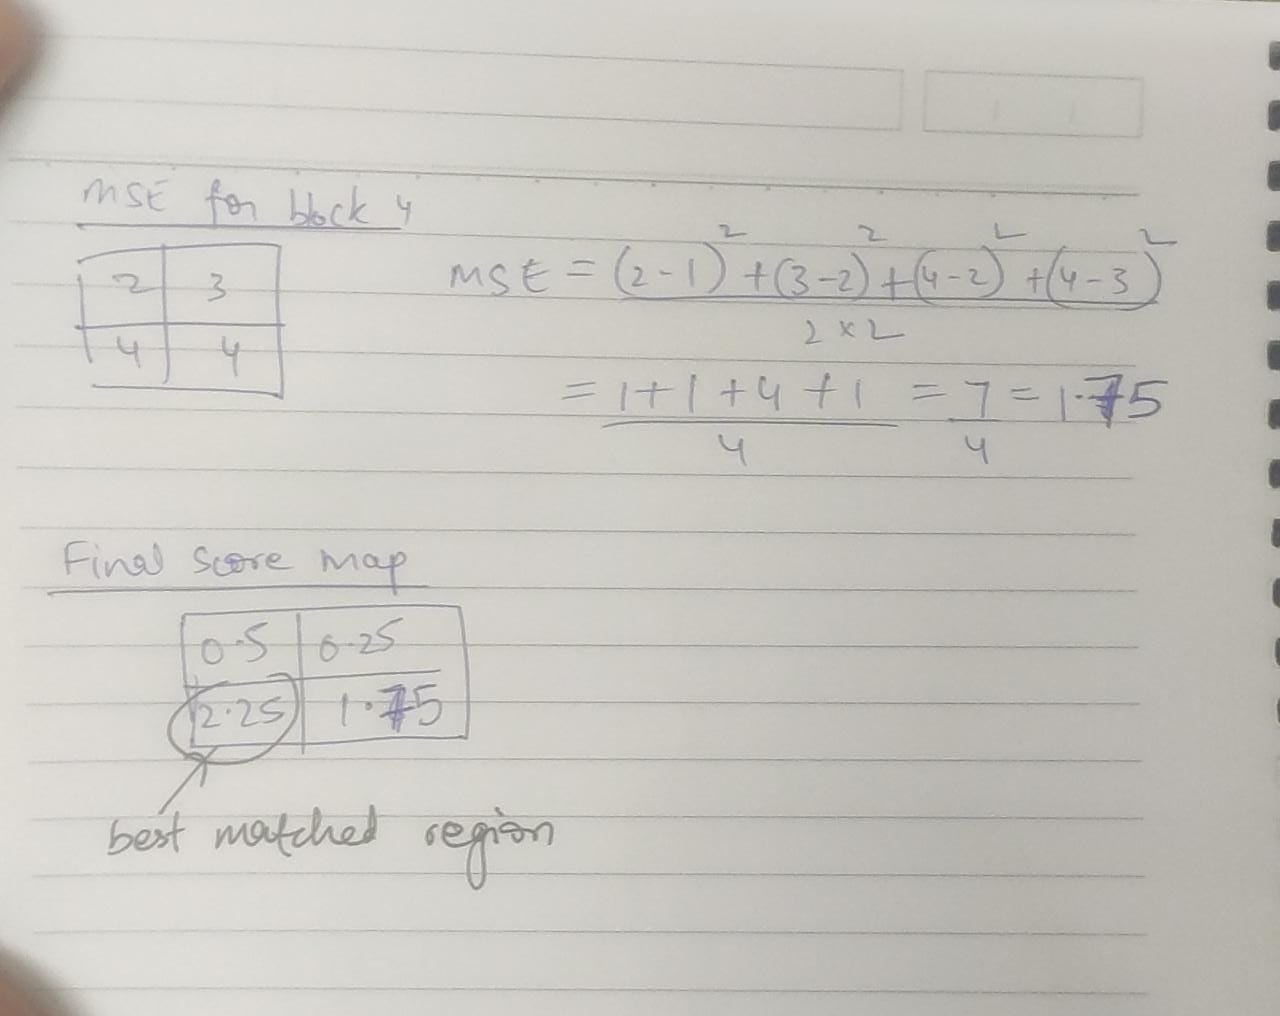 MSE for block 4
2 3
4 4
MSE = (2-1)² + (3-2)² + (4-2)² + (4-3)²
2 × 2
= 1 + 1 + 4 + 1 = 7 = 1.75
4 4
Final Score Map
0.5 0.25
2.25 1.75
best matched region